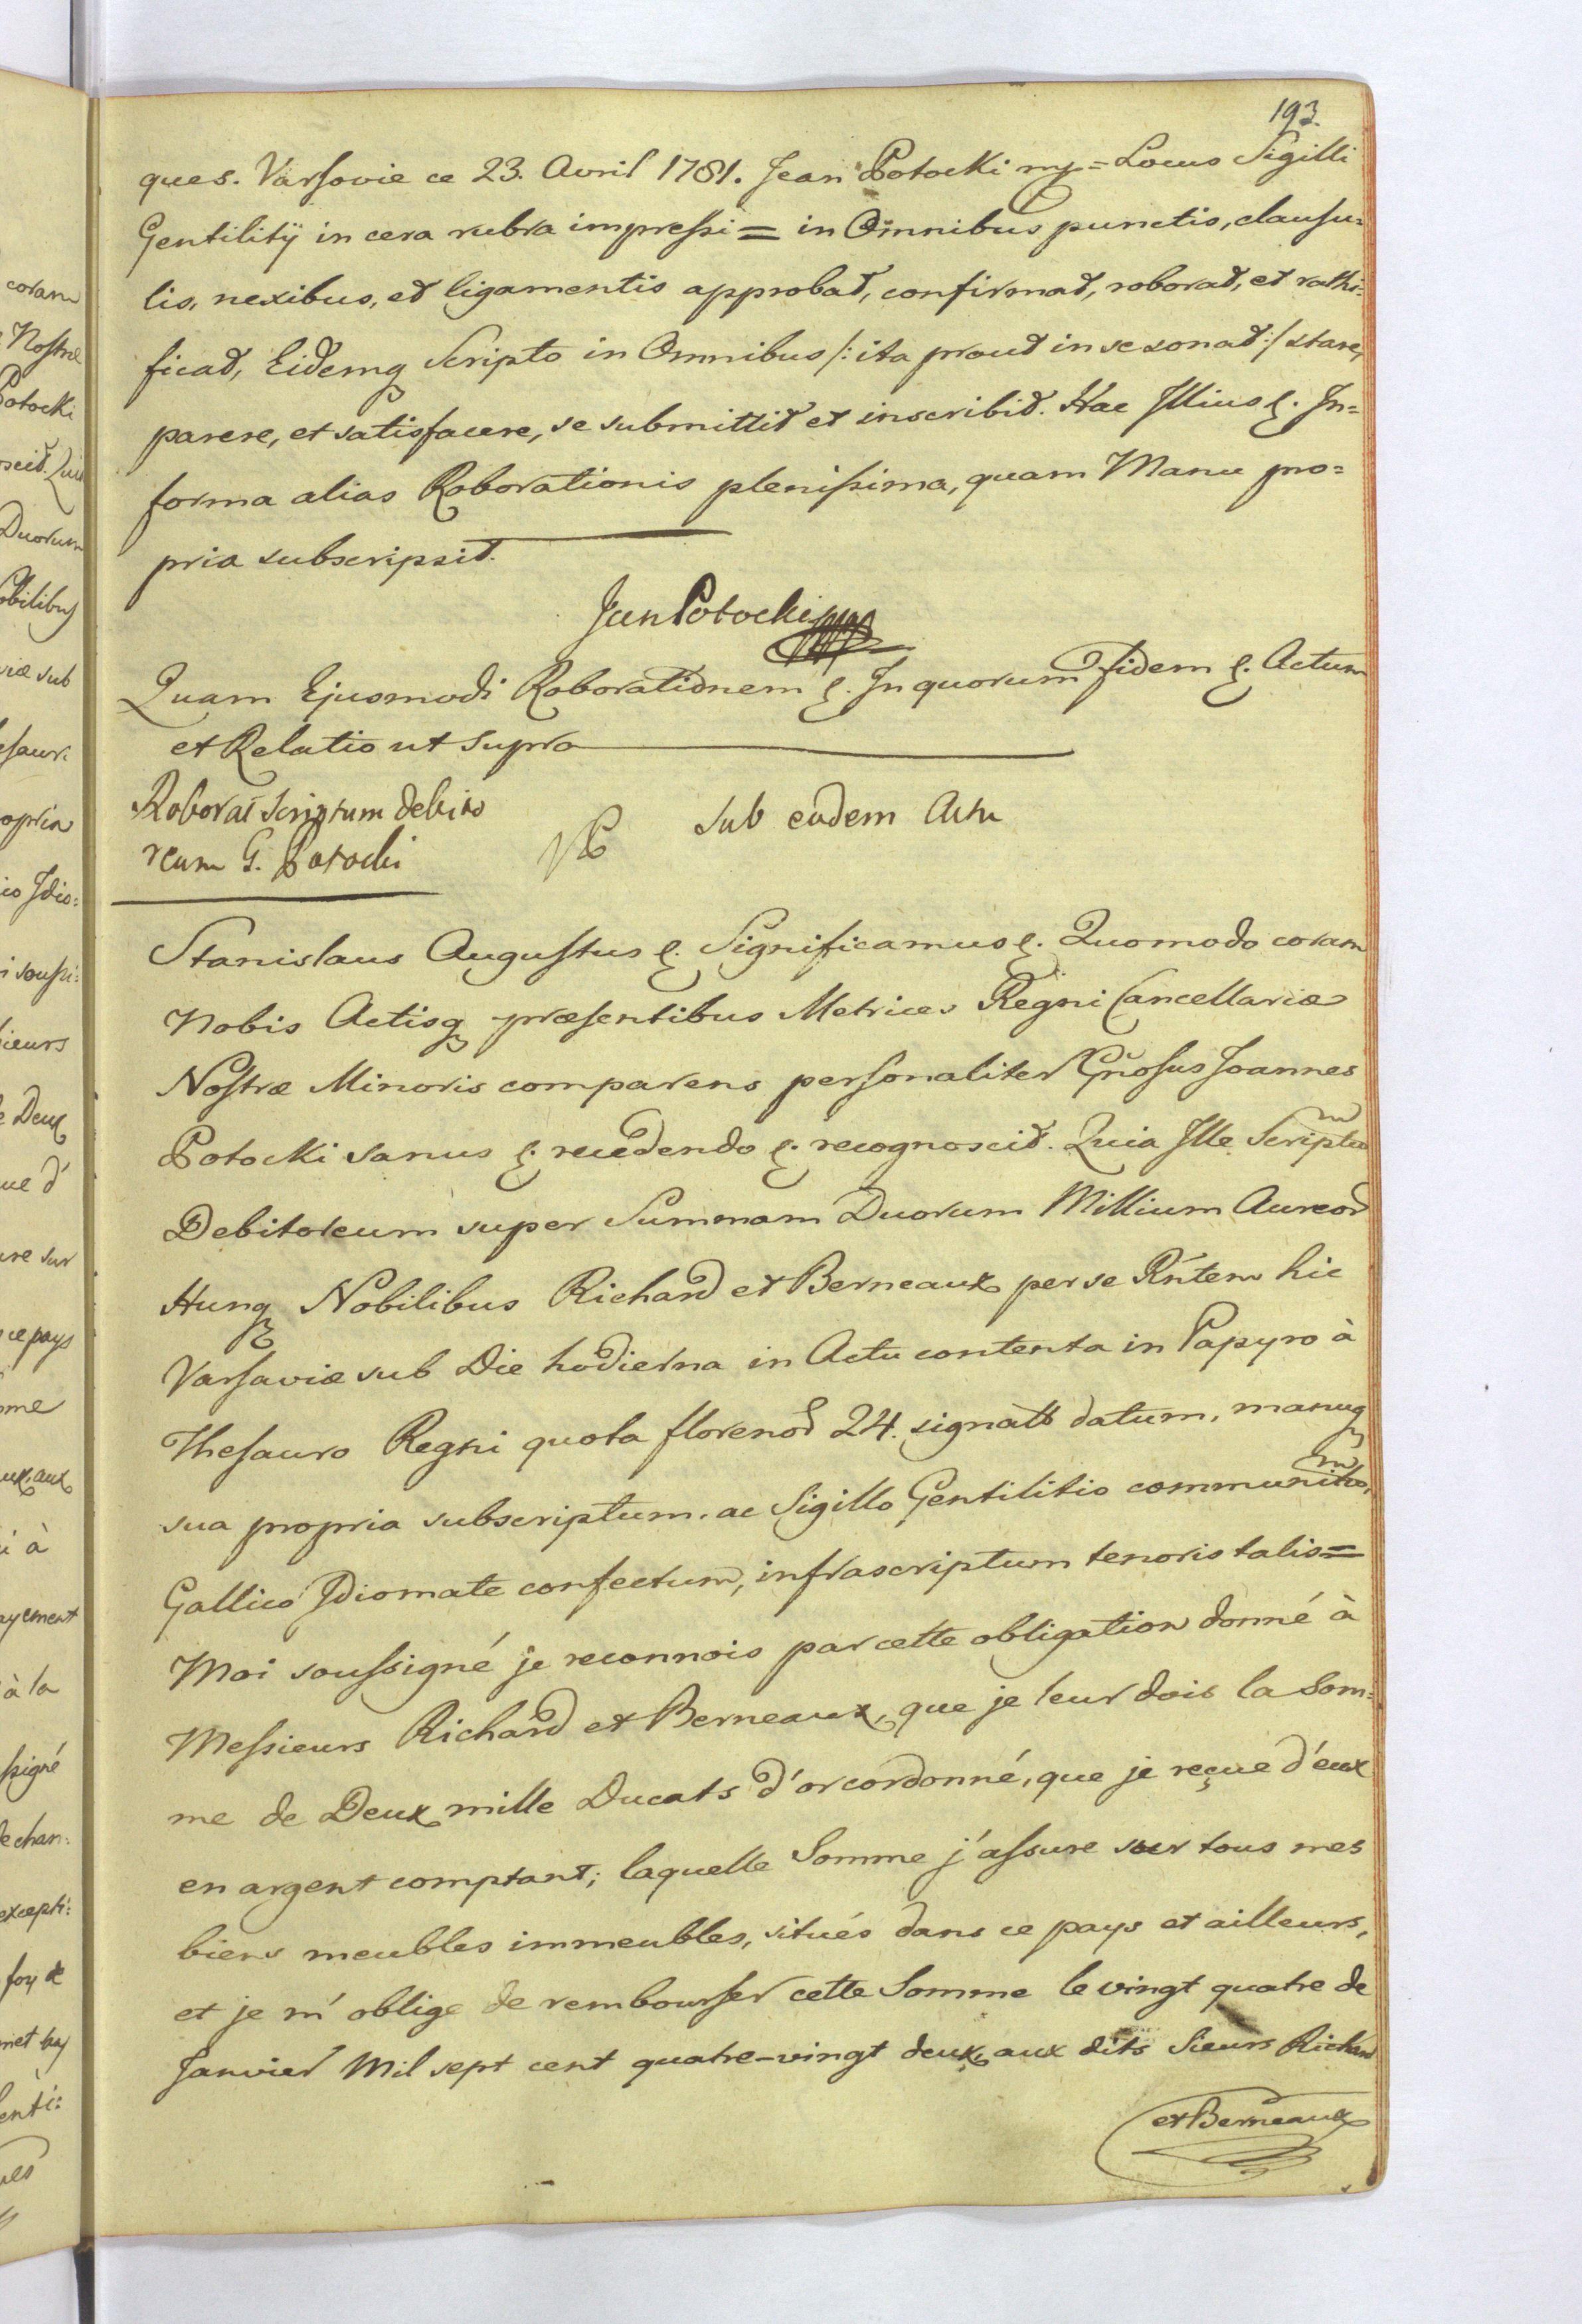 193.
ques. Varsovie ce 23. Avril 1781. Jean Potocki mp = Locus Sigilli
Gentilitij in cera rubra impressi = in Omnibus punctis, clausu=
lis, nexibus, et ligamentis approbat, confirmat, roborat, et rathi=
ficat, Eidemq Scripto in Omnibus /: ita prout in se sonat :/ stare,
parere, et satisfacere, se submittit et inscribit. Hac Illius &. In=
forma alias Roborationis plenissima, quam Manu pro=
pria subscripsit.
Jan Potocki mp
Quam Ejusmodi Roborationem &. In quorum fidem &. Actum
et Relatio ut Supra
Roborat Scriptum debito
reum G. Potocki
Sub eodem Actu
Stanislaus Augustus &. Significamus &. Quomodo coram
Nobis Actisq præsentibus Metrices Regni Cancellariæ
Nostræ Minoris comparens personaliter Gnosus Joannes
Potocki sanus &. recedendo &. recognoscit. Quia Ille Scriptum
Debitoreum super Summam Duorum Millium Aureor
Hung Nobilibus Richard et Berneaux per se Rntem hic
Varsaviæ sub Die hodierna in Actu contenta in Papyro à
Thesauro Regni quota florenor 24. signata datum, manuq
sua propria subscriptum, ac Sigillo Gentilitio communitum,
Gallico Idiomate confectum, infrascriptum tenoris talis =
Moi soussigné je reconnois par cette obligation donné à
Messieurs Richard et Berneaux, que je leur dois la Som=
me de Deux mille Ducats d'or cordonné, que je reçue d'eux
en argent comptant; laquelle Somme j'assure sur tous mes
biens meubles immeubles, situés dans ce pays et ailleurs,
et je m'oblige de rembourser cette Somme le vingt quatre de
Janvier Mil sept cent quatre-vingt deux, aux dits Sieurs Richard
et Berneaux